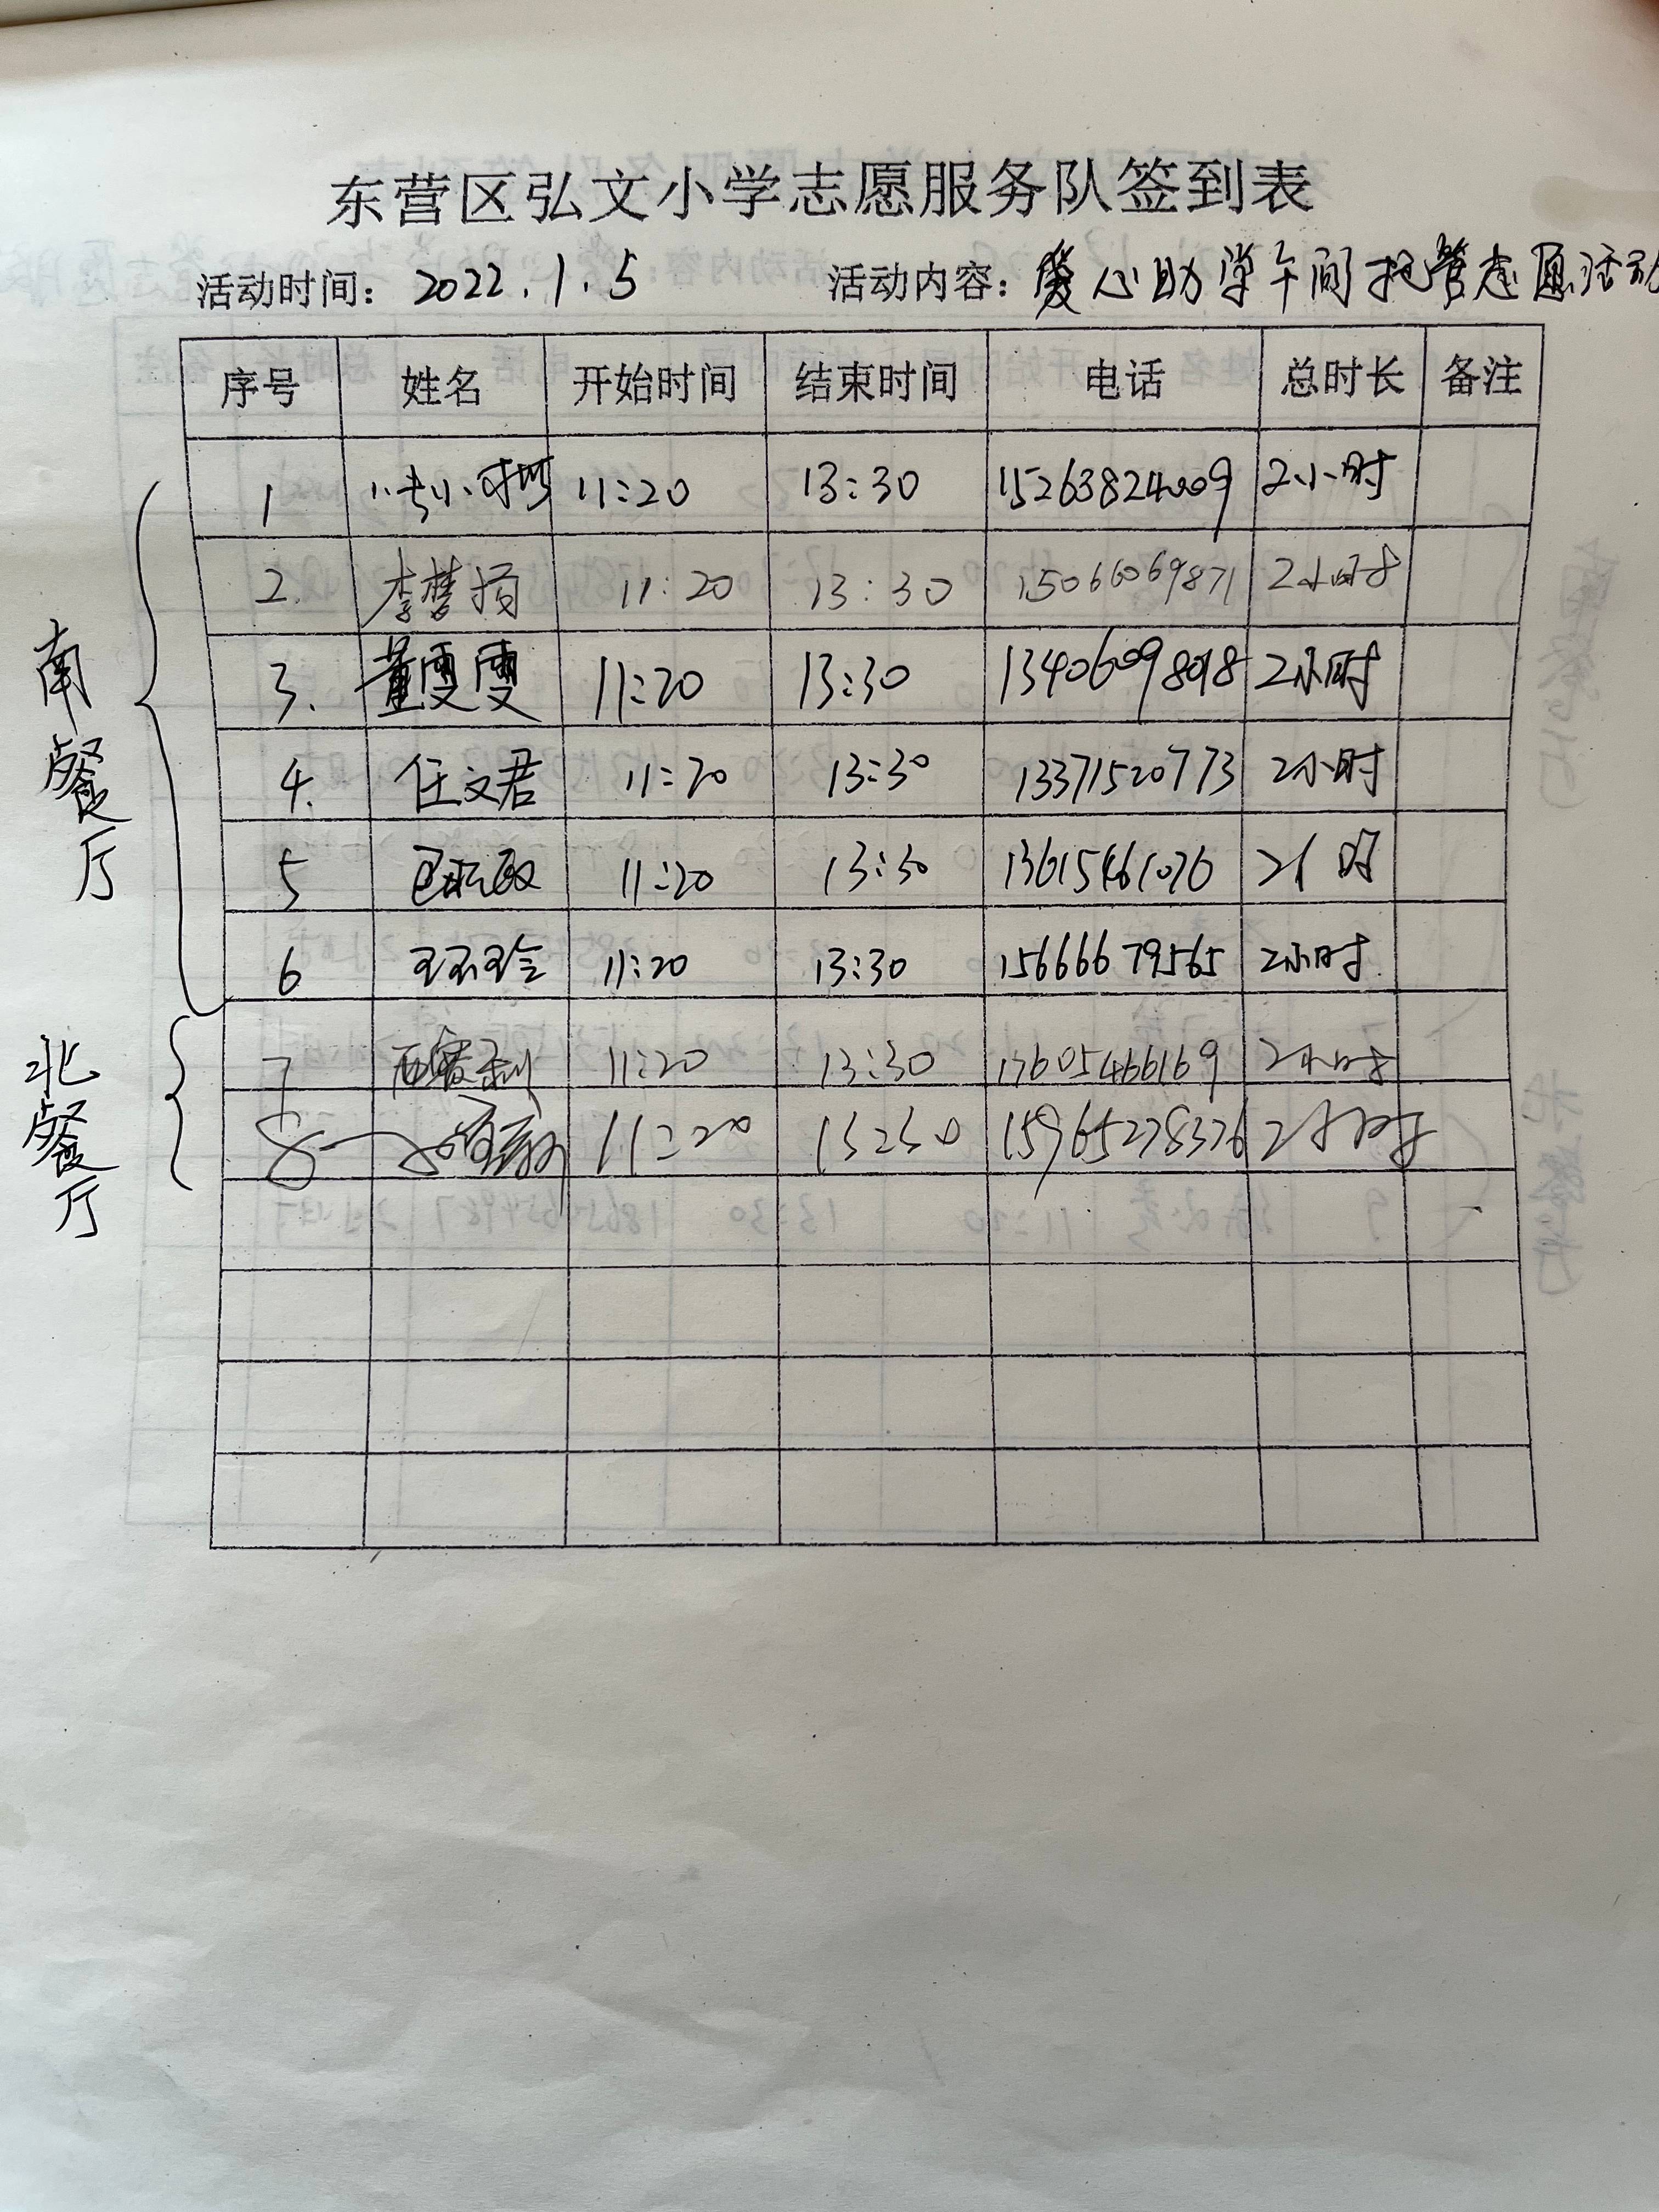 东营区弘文小学志愿服务队签到表
活动时间：2022.1.5 活动内容：爱心助学午间托管志愿活动
序号 姓名 开始时间 结束时间 电话 总时长 备注
南餐厅
1 11:20 13:30 15263824009 2小时
2. 李梦 11:20 13:30 15066069871 2小时
3. 董雯雯 11:20 13:30 13406098018 2小时
4. 任文君 11:20 13:30 13371520773 2小时
5 11:20 13:30 13615461076 2小时
6 11:20 13:30 15666679565 2小时
北餐厅
7 11:20 13:30 17605466169 2小时
8 11:20 13:30 15965278376 2小时